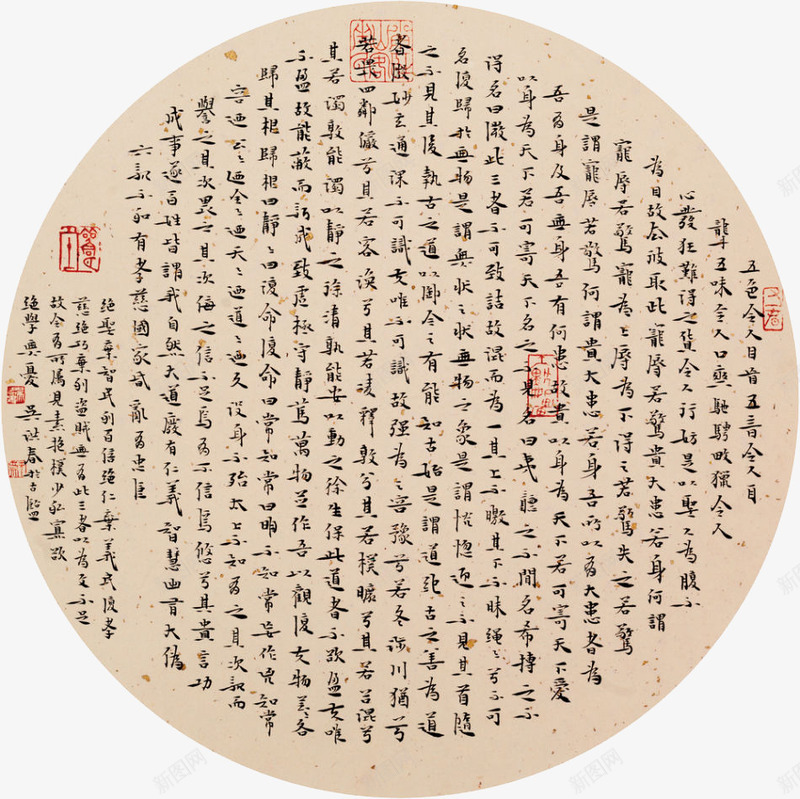 五色令人目盲五音令人耳
聾五味令人口爽馳騁畋獵令人
心發狂難得之貨令人行妨是以聖人為腹不
為目故去彼取此寵辱若驚貴大患若身何謂
寵辱若驚寵為上辱為下得之若驚失之若驚
是謂寵辱若驚何謂貴大患若身吾所以有大患者為
吾有身及吾無身吾有何患故貴以身為天下若可寄天下愛
以身為天下若可寄天下名之不見名曰夷聽之不聞名希摶之不
得名曰微此三者不可致詰故混而為一其上不皦其下不昧繩〻兮不可
名復歸於無物是謂無狀之狀無物之象是謂惚恍迎之不見其首隨
之不見其後執古之道以御今之有能知古始是謂道紀古之善為道
者微妙玄通深不可識夫唯不可識故強為之容豫兮若冬涉川猶兮
若畏四鄰儼兮其若客渙兮其若凌釋敦兮其若樸曠兮其若谷混兮
其若濁孰能濁以靜之徐清孰能安以動之徐生保此道者不欲盈夫唯
不盈故能蔽而新成致虛極守靜篤萬物並作吾以觀復夫物芸〻各
歸其根歸根曰靜〻曰復命復命曰常知常曰明不知常妄作凶知常
容迺公〻迺全〻迺天〻迺道〻迺久沒身不殆太上不知有之其次親而
譽之其次畏之其次侮之信不足焉有不信焉悠兮其貴言功
成事遂百姓皆謂我自然大道廢有仁義智慧出有大偽
六親不和有孝慈國家昏亂有忠臣
絕聖棄智民利百倍絕仁棄義民復孝
慈絕巧棄利盜賊無有此三者以為文不足
故令有所屬見素抱樸少私寡欲
絕學無憂 吳洪春於古